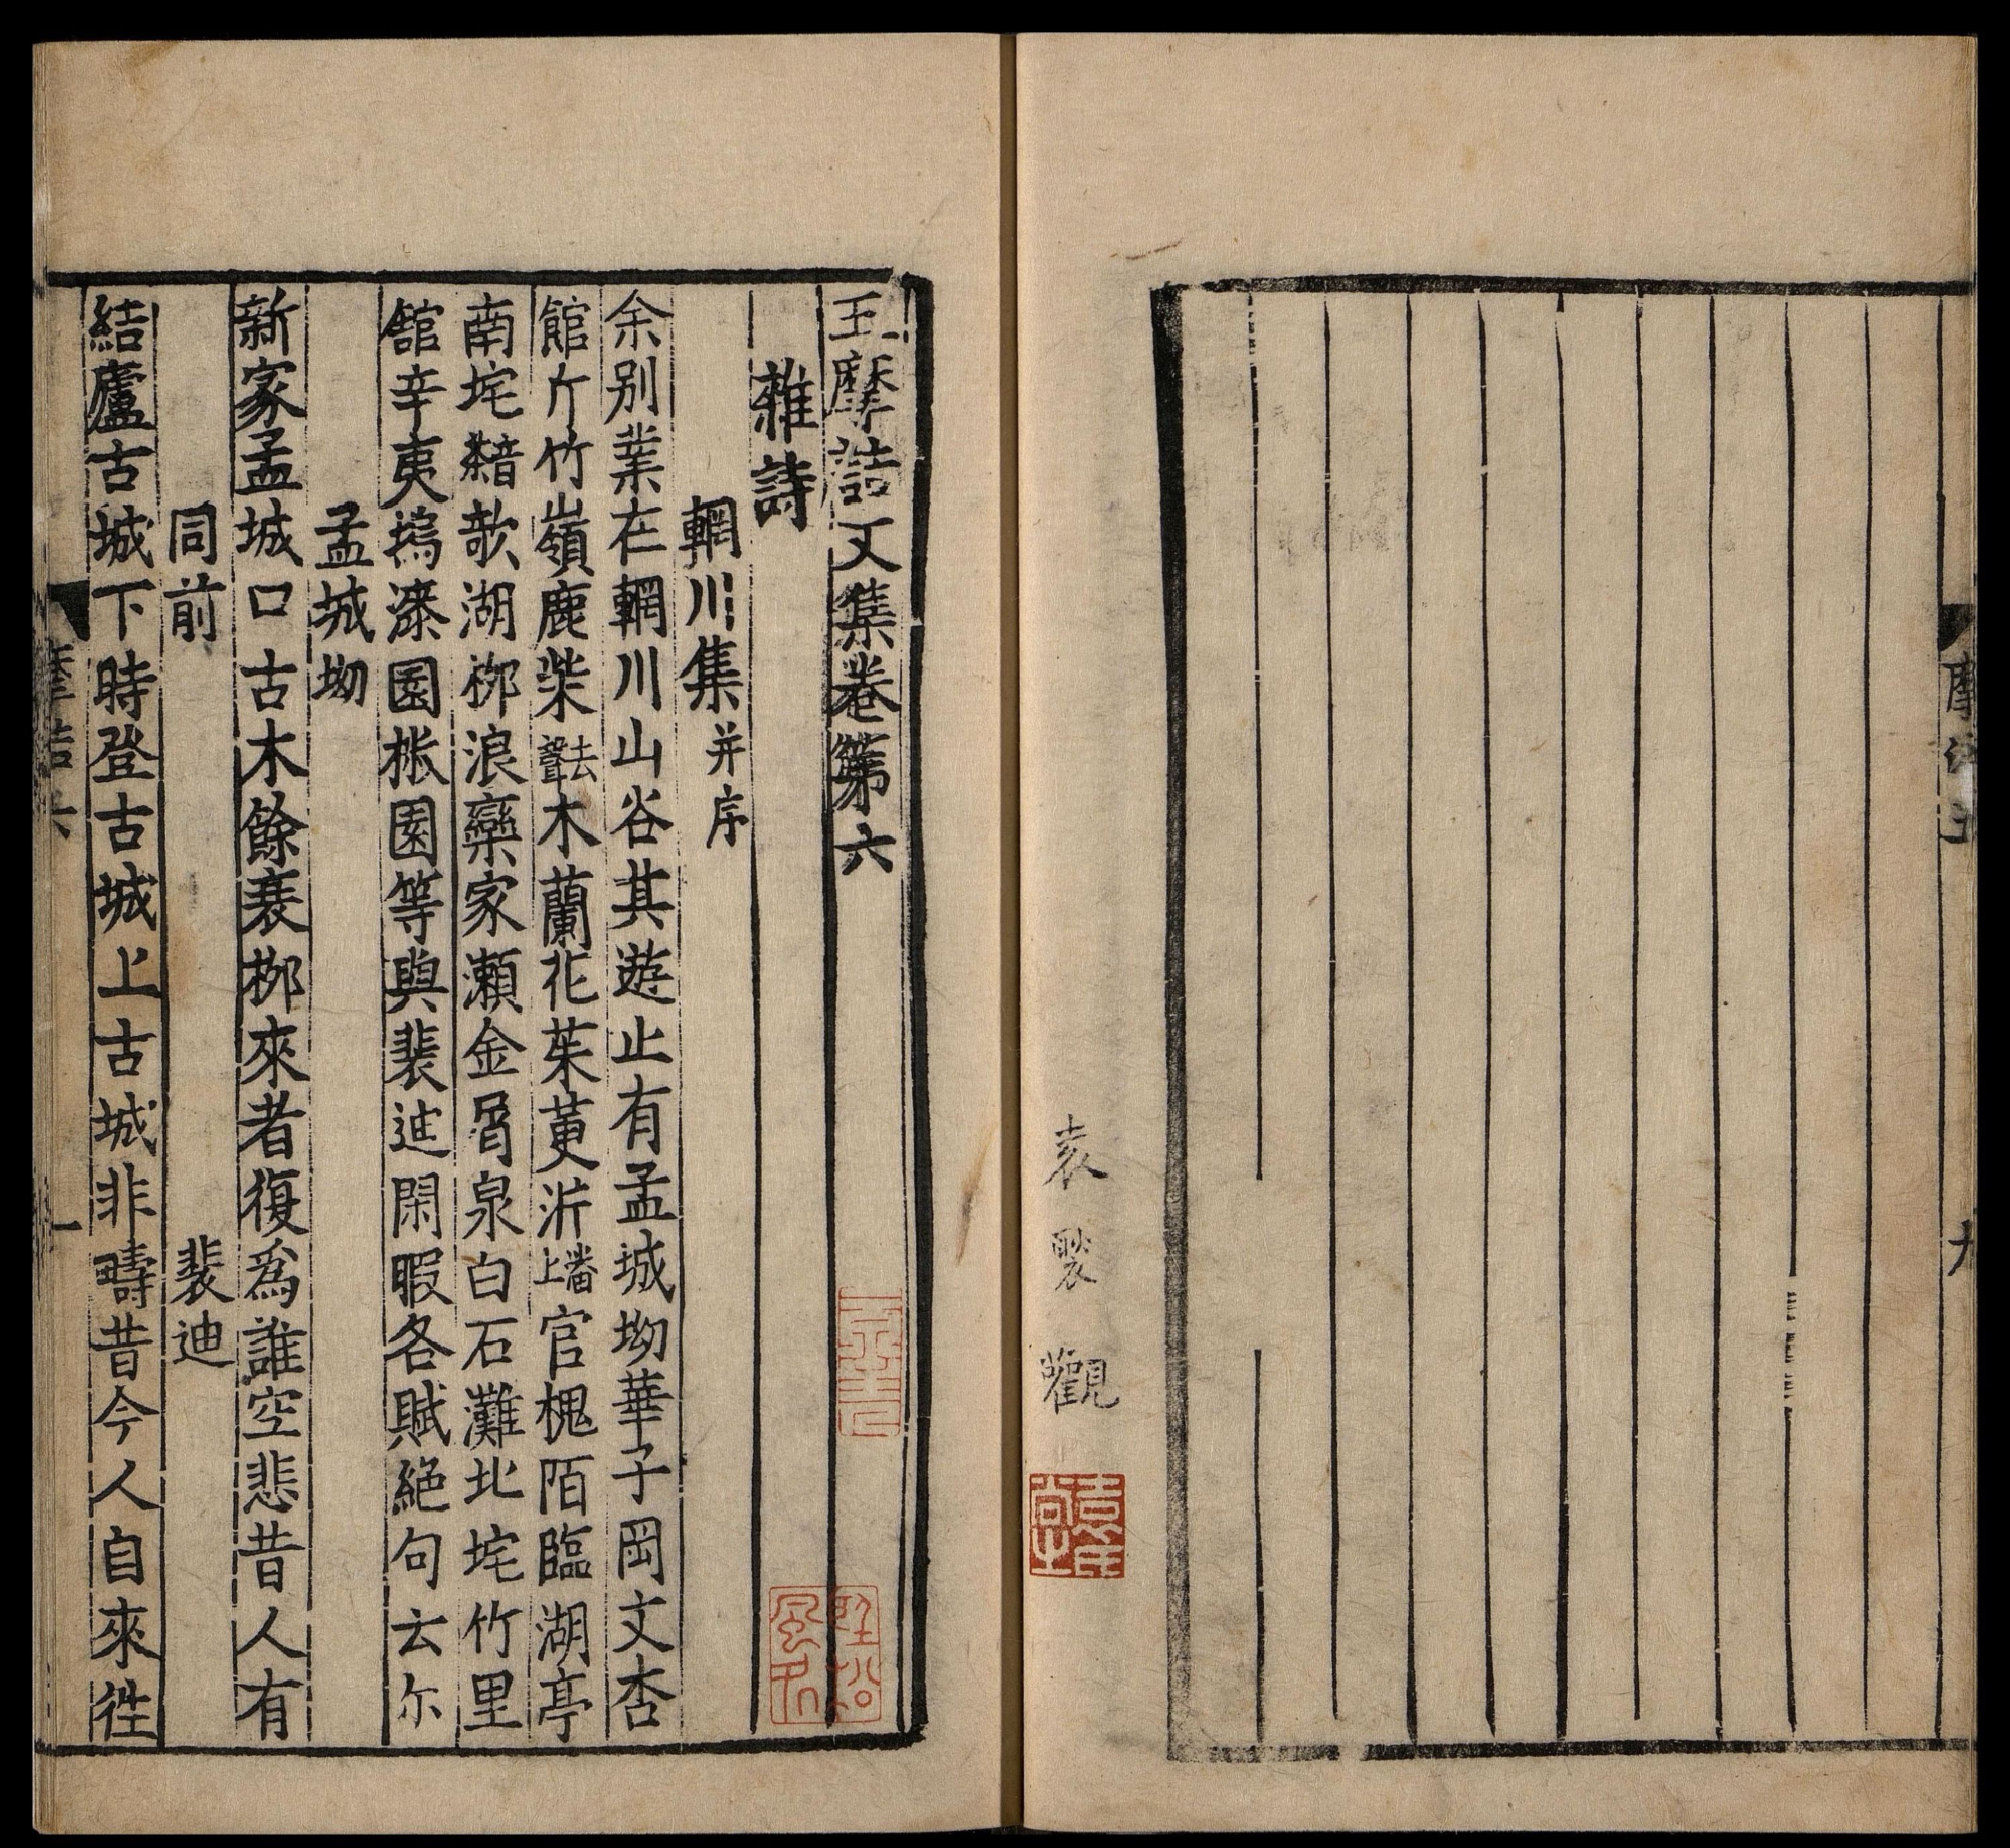 袁褧觀
王摩詰文集卷第六
雜詩
輞川集并序
余別業在輞川山谷其遊止有孟城坳華子岡文杏
館斤竹嶺鹿柴去聲木蘭花茱萸沜上番官槐陌臨湖亭
南垞欹湖柳浪欒家瀨金屑泉白石灘北垞竹里
舘辛夷塢漆園椒園等與裴迪閑暇各賦絕句云尓
孟城坳
新家孟城口古木餘衰柳來者復爲誰空悲昔人有
同前 裴迪
結廬古城下時登古城上古城非疇昔今人自來徃
摩詰六 一